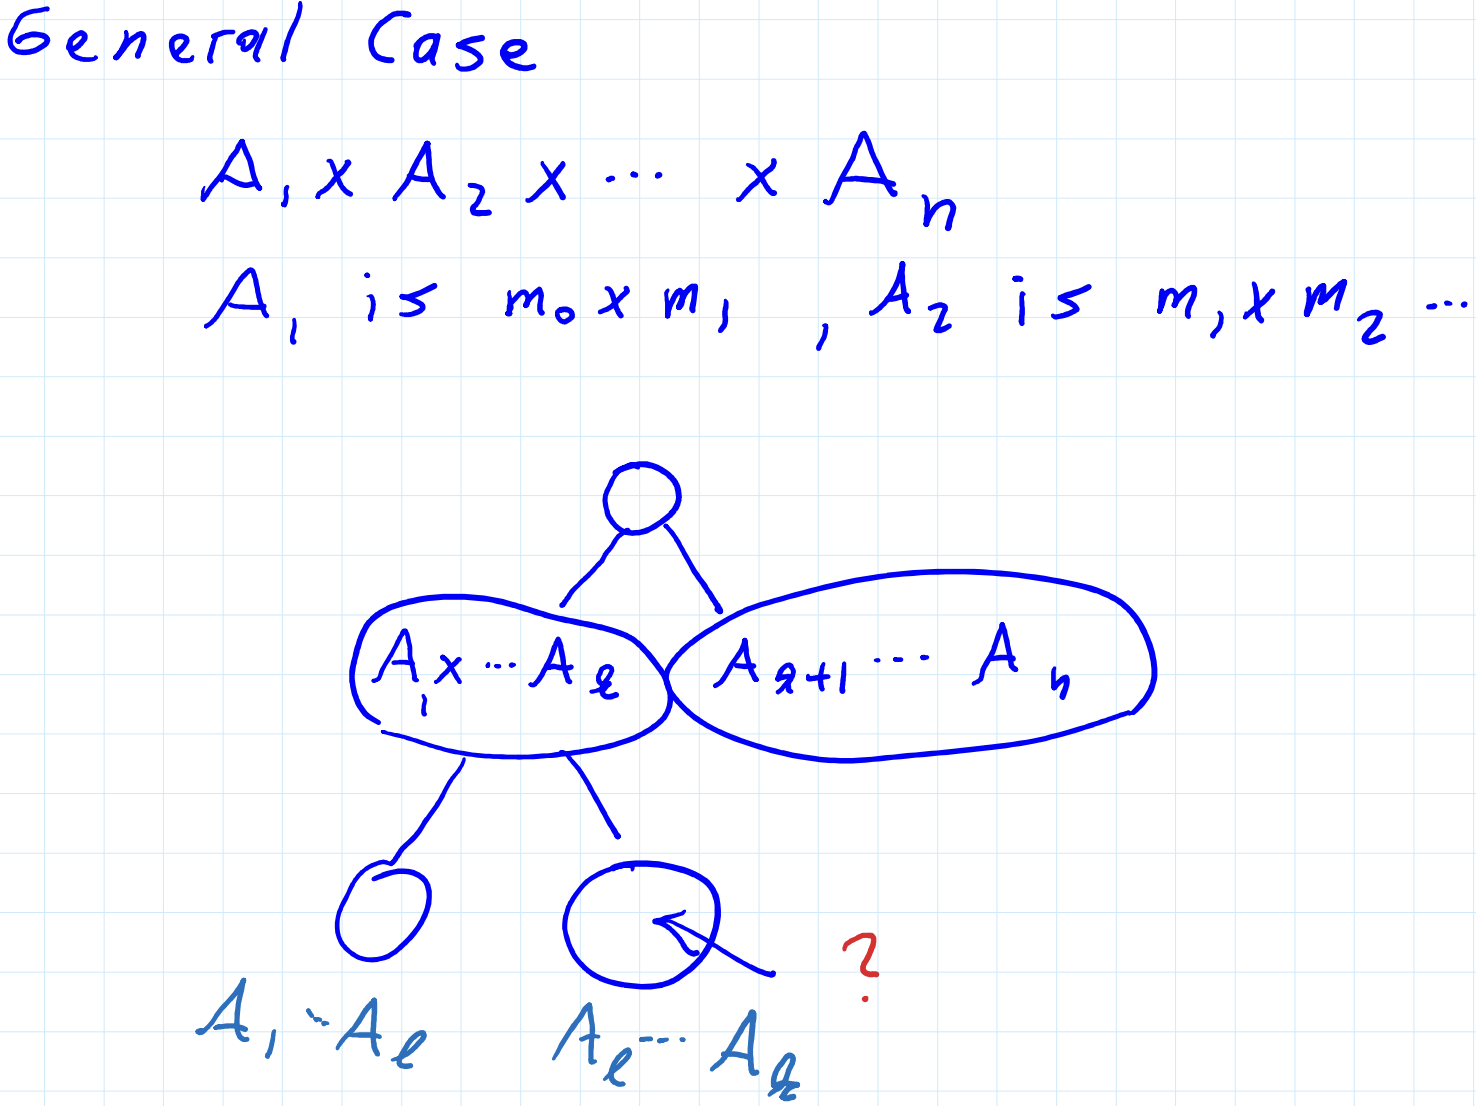 General Case
A₁ x A₂ x ... x Aₙ
A₁ is m₀ x m₁ , A₂ is m₁ x m₂ ...
A₁ x ... A_k A_k+1 ... Aₙ
?
A₁ ... A_l A_l ... A_k